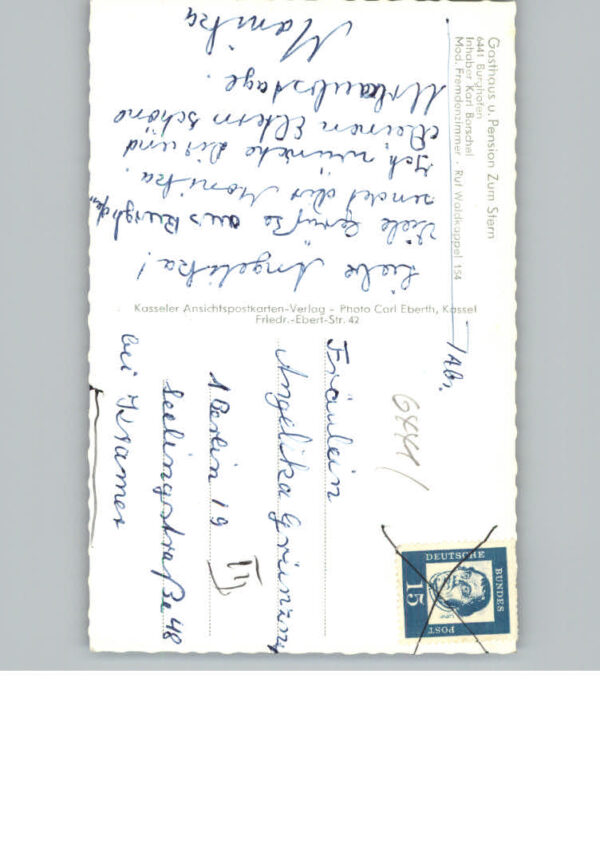 Gasthaus u. Pension Zum Stern
6441 Burghofen
Inhaber Karl Borschel
Mod. Fremdenzimmer · Ruf Waldkappel 154
Liebe Angelika!
Viele Grüße aus Burghofen
sendet dir Monika.
Ich wünsche Dir und
Deinen Eltern schöne
Urlaubstage.
Monika
Kasseler Ansichtspostkarten-Verlag - Photo Carl Eberth, Kassel
Friedr.-Ebert-Str. 42
6441/
DEUTSCHE
BUNDES
POST
15
Fräulein
Angelika
1 Berlin 19
Seelingstraße 48
bei Kramer